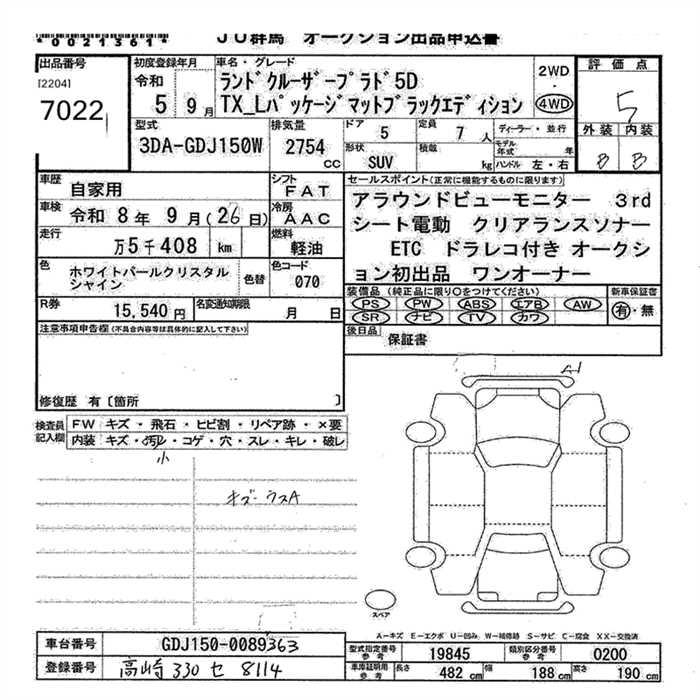 *0021361*
JU群馬 オークション出品申込書
出品番号
[2204]
7022
初度登録年月
令和
5 9月
車名・グレード
ランドクルーザープラド5D
TX_Lパッケージマットブラックエディション
2WD
・
4WD
評価点
5
外装 内装
B B
型式
3DA-GDJ150W
排気量
2754
cc
ドア
5
定員
7人
形状
SUV
積載
kg
ディーラー・並行
モデル年式 年
ハンドル 左・右
車歴
自家用
シフト
FAT
車検
令和 8年 9月(26日)
冷房
AAC
走行
万5千408 km
燃料
軽油
色
ホワイトパールクリスタル
シャイン
色替
色コード
070
R券
15,540円
名変通知期限
月 日
セールスポイント(正常に機能するものに限ります)
アラウンドビューモニター 3rd
シート電動 クリアランスソナー
ETC ドラレコ付き オークシ
ョン初出品 ワンオーナー
装備品(純正品に限り○をつけてください)
PS PW ABS エアB AW
SR ナビ TV カワ
新車保証書
有・無
後日品
保証書
注意事項申告欄(不具合内容等は具体的に記入して下さい)
修復歴 有〔箇所 〕
検査員
記入欄
FW キズ・飛石・ヒビ割・リペア跡・×要
内装 キズ・汚れ・コゲ・穴・スレ・キレ・破レ
小
キズ・ウスA
A1
スペア
A-キズ E-エクボ U-凹み W-補修跡 S-サビ C-腐食 XX-交換済
車台番号
GDJ150-0089363
登録番号
高崎 330 セ 8114
型式指定番号
参考
19845
類別区分番号
参考
0200
車庫証明用
参考
長さ
482 cm
幅
188 cm
高さ
190 cm